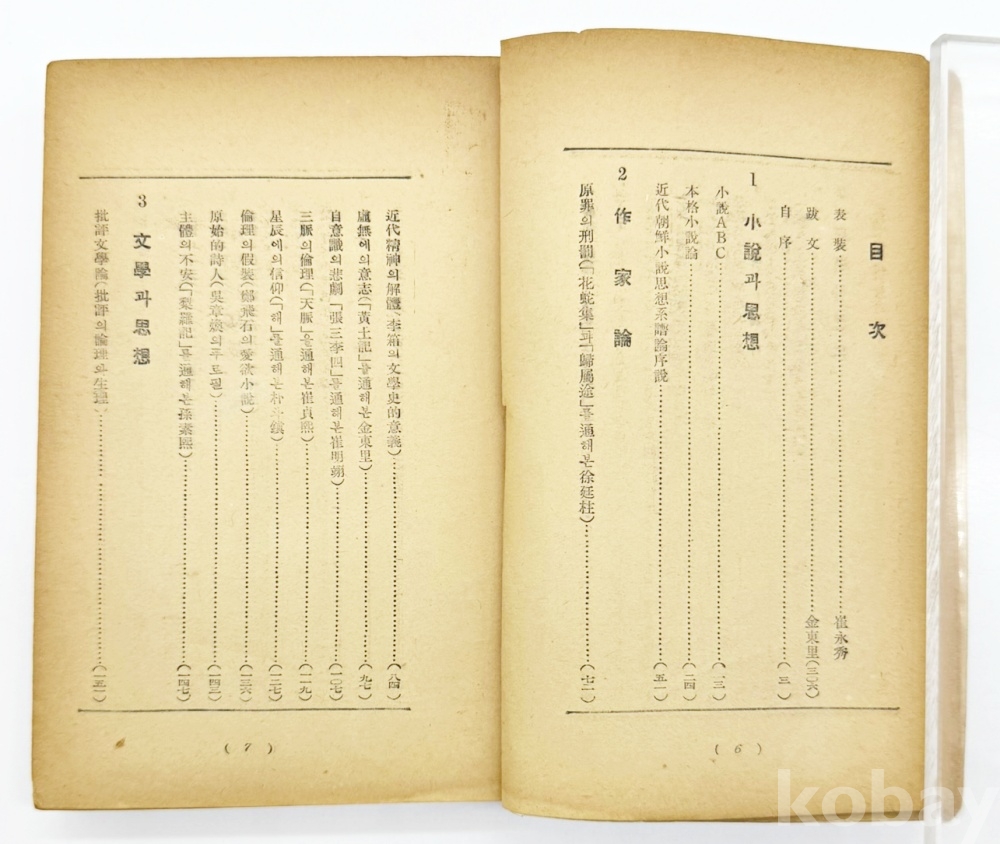 目次
表裝……崔永秀
跋文……金東里(三〇六)
自序……(三)
1 小說과思想
小說ABC……(一三)
本格小說論……(二四)
近代朝鮮小說思想系譜論序說……(五一)
2 作家論
原罪의刑罰(「花蛇集」과「歸屬途」를通해본徐廷柱)……(七一)
(6)
近代精神의解體(李箱의文學史的意義)……(八四)
虛無에의意志(「黃土記」를通해본金東里)……(九七)
自意識의悲劇(「張三李四」를通해본崔明翊)……(一〇七)
三脈의倫理(「天脈」을通해본崔貞熙)……(一一九)
星辰에의信仰(「해」를通해본朴斗鎭)……(一二七)
倫理의假裝(鄭飛石의愛欲小說)……(一三六)
原始的詩人(吳章煥의푸로필)……(一四三)
主體의不安(「梨羅記」를通해본孫素熙)……(一四七)
3 文學과思想
批評文學論(批評의論理와生理)……(一五一)
(7)
kobay